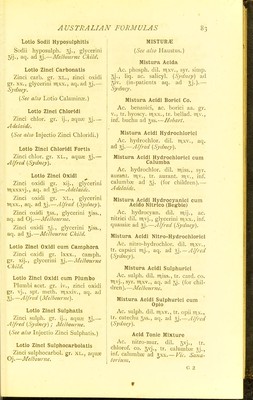 AUSTRALIAN FORMULAS 83
Lotio Sodii Hyposulphitis
Sodii hyposulph. ʒj., glycerini
ʒij., aq. ad ℥j.—Melbourne Child.
Lotio Zinci Carbonatis
Zinci carb. gr. xx., zinci oxidi
gr. xx., glycerini ♏xx., aq. ad ℥j.—
Sydney.
(See also Lotio Calaminæ.)
Lotio Zinci Chloridi
Zinci chlor. gr. ij., aquæ ℥j.—
Adelaide.
(See also Injectio Zinci Chloridi.)
Lotio Zinci Chloridi Fortis
Zinci chlor. gr. xl., aquæ ℥j.—
Alfred (Sydney).
Lotio Zinci Oxidi
Zinci oxidi gr. xij., glycerini
aq. ad ℥j.—Adelaide.
Zinci oxidi gr. xl., glycerini
♏xx., aq. ad ℥j.—Alfred (Sydney).
Zinci oxidi ʒss., glycerini ʒiss.,
aq. ad Oj.—Melbourne.
Zinci oxidi ʒj., glycerini ʒiss.,
aq. ad ℥j.—Melbourne Child.
Lotio Zinci Oxidi cum Camphora
Zinci oxidi gr. lxxx., camph.
gr. xij., glycerini ℥j.—Melbourne
Child.
Lotio Zinci Oxidi cum Plumbo
Plumbi acet. gr. iv., zinci oxidi
gr. vj., spt. meth. ♏xxiv., aq. ad
℥j.—Alfred (Melbourne).
Lotio Zinci Sulphatis
Zinci sulph. gr. ij., aquæ ℥j.—
Alfred (Sydney); Melbourne.
(See also Injectio Zinci Sulphatis.)
Lotio Zinci Sulphocarbolatis
Zinci sulphocarbol. gr. xl., aquæ
Oj.—Melbourne.
MISTURÆ
(See also Haustus.)
Mistura Acida
Ac. phosph. dil. ♏xv., syr. simp.
ʒj., liq. ac. salicyl. (Sydney) ad
aq. ad ℥j.).—
Sydney.
Mistura Acidi Borici Co.
Ac. benzoici, ac. borici aa. gr.
v., tr. hyoscy. ♏xx., tr. ballad. ♏v.,
inf. buchu ad ℥ss.—Hobart.
Mistura Acidi Hydrochlorici
Ac. hydrochlor. dil. ♏xv., aq.
ad ℥j.—Alfred (Sydney).
Mistura Acidi Hydrochlorici cum
Calumba
Ac. hydrochlor. dil. syr.
aurant. ♏v., tr. aurant. ♏v., inf.
calumbæ ad ʒj. (for children).—
Adelaide.
Mistura Acidi Hydrocyanici cum
Acido Nitrico (Begbie)
Ac. hydrocyan. dil. ♏ij., ac.
nitrici dil. ♏vj., glycerini ♏xx., inf.
quassiæ ad ℥j.—Alfred (Sydney).
Mistura Acidi Nitro-Hydrochlorici
Ac. nitro-hydrochlor. dil. ♏x.,
tr. capsici ♏j., aq. ad ℥j.—Alfred
(Sydney).
Mistura Acidi Sulphurici
Ac. sulph. dil. tr. card. co.
♏vj., syr. ♏xv., aq. ad ʒj. (for children).—Melbourne.
Mistura Acidi Sulphurici cum
Opio
Ac. sulph. dil. ♏xv., tr. opii ♏x.,
tr. catechu ʒss., aq. ad ℥j.—Alfred
(Sydney).
Acid Tonic Mixture
Ac. nitro-mur. dil. ʒvj., tr.
chlorof. co. ʒvj., tr. calumbæ ℥j.,
inf. calumbæ ad ℥xx.—Vic. Sanatorium.
G 2